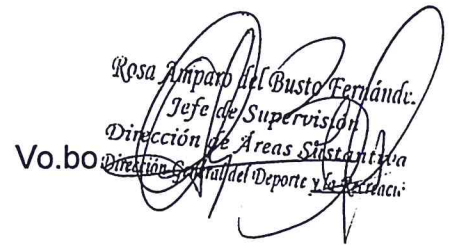 Rosa Amparo del Busto Fernánde.
Jefe de Supervisión
Dirección de Áreas Sustantiva
Vo.bo. Dirección General del Deporte y la Recreaci: